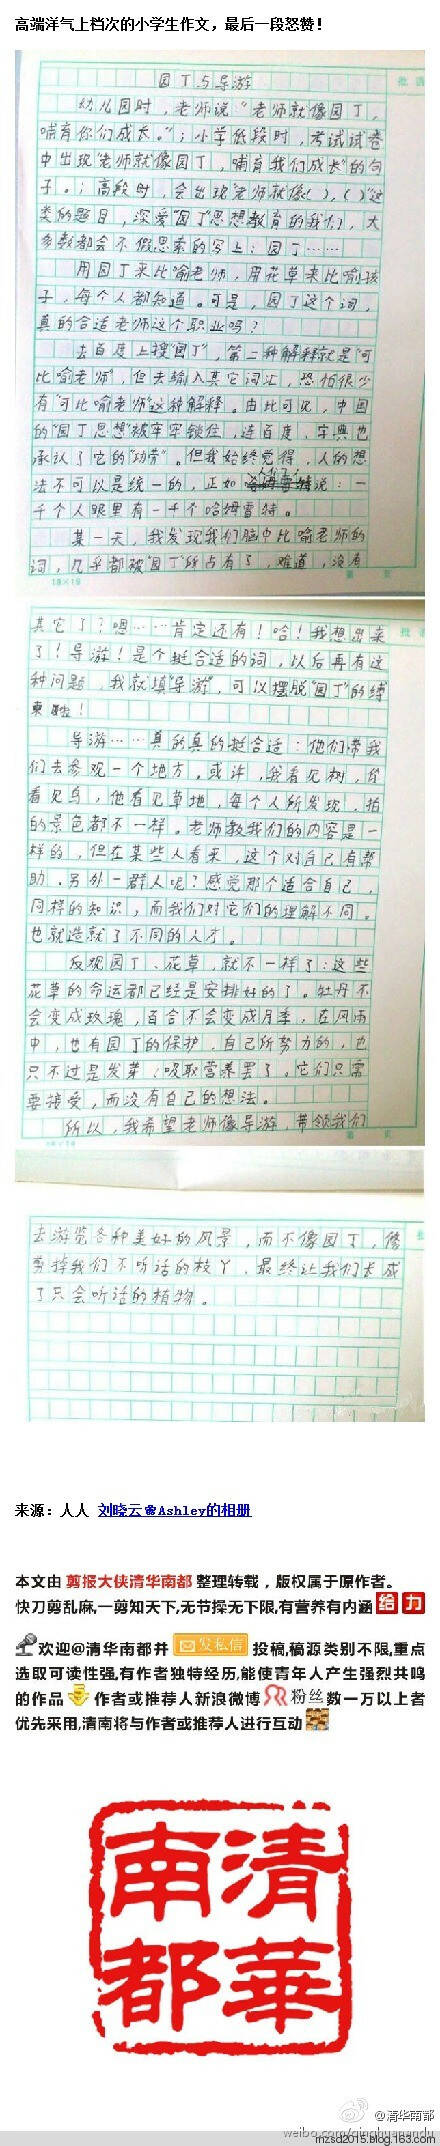 高端洋气上档次的小学生作文，最后一段怒赞！
园丁与导游
幼儿园时，老师说“老师就像园丁，
哺育你们成长。”；小学低段时，考试试卷
中出现“老师就像园丁，哺育我们成长”的句
子。；高段时，会出现“老师就像( )，( )”这
类的题目，深爱“园丁”思想教育的我们，大
多数都会不假思索的写上：园丁……
用园丁来比喻老师，用花草来比喻孩
子，每个人都知道。可是，园丁这个词，
真的合适老师这个职业吗？
去百度上搜“园丁”，第二种解释就是“可
比喻老师”，但去输入其它词汇，恐怕很少
有“可比喻老师”这种解释。由此可见，中国
的“园丁思想”被牢牢锁住，连百度、字典也
承认了它的“功劳”。但我始终觉得，人的想
法不可以是统一的，正如 人们了 说：一
千个人眼里有一千个哈姆雷特。
某一天，我发现我们脑中比喻老师的
词，几乎都被“园丁”所占有了，难道，没有
18×19
第 页
其它了？嗯……肯定还有！哈！我想出来
了！导游！是个挺合适的词，以后再有这
种问题，我就填“导游”，可以摆脱“园丁”的缚
束啦！
导游……真的真的挺合适：他们带我
们去参观一个地方。或许，我看见树，你
看见鸟，他看见草地，每个人所发现、拍
的景色都不一样。老师教我们的内容是一
样的，但在某些人看来，这个对自己有帮
助。另外一群人呢？感觉那个适合自己，
同样的知识，而我们对它们的理解不同。
也就造就了不同的人才。
反观园丁、花草，就不一样了：这些
花草的命运都已经是安排好的了。牡丹不
会变成玫瑰，百合不会变成月季，在风雨
中，也有园丁的保护，自己所努力的，也
只不过是发芽、吸取营养罢了。它们只需
要接受，而没有自己的想法。
所以，我希望老师像导游，带领我们
第 页
去游览各种美好的风景，而不像园丁，修
剪掉我们不听话的枝丫，最终让我们长成
了只会听话的植物。
来源：人人 刘晓云❀Ashley的相册
本文由 剪报大侠清华南都 整理转载，版权属于原作者。
快刀剪乱麻,一剪知天下,无节操无下限,有营养有内涵 给 力
欢迎@清华南都并 发私信 投稿,稿源类别不限,重点
选取可读性强,有作者独特经历,能使青年人产生强烈共鸣
的作品 作者或推荐人新浪微博 粉丝 数一万以上者
优先采用,清南将与作者或推荐人进行互动
清華
南都
@清华南都
weibo.com/qinghuanandu
mzsd2015.blog.163.com